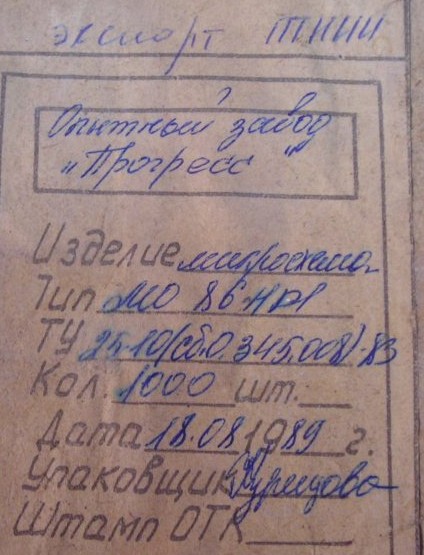 экспорт ТНИИ
Опытный завод
"Прогресс"
Изделие микросхема
Тип МО 86
ТУ 25-10(сб.0.345.008)-83
Кол. 1000 шт.
Дата 18.08 1989 г.
Упаковщик
Штамп ОТК